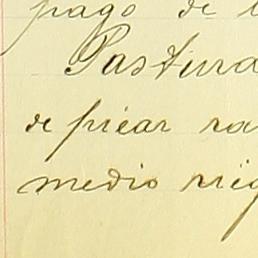 pago de l
Pastura
de piéar ra
medio rrig